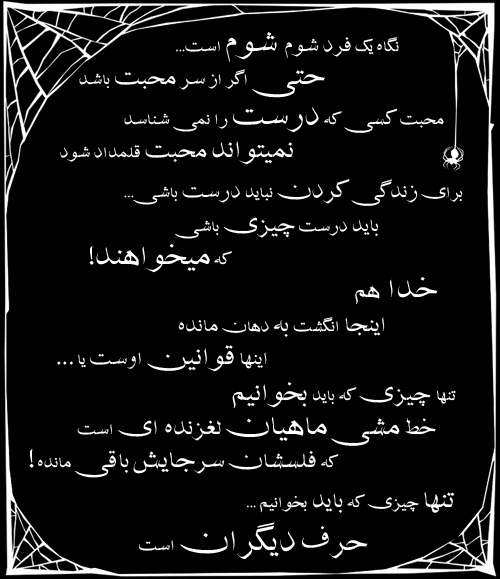 نگاه یک فرد شوم شوم است...
حتی اگر از سر محبت باشد
محبت کسی که درست را نمی شناسد
نمیتواند محبت قلمداد شود
برای زندگی کردن نباید درست باشی...
باید درست چیزی باشی
که میخواهند!
خدا هم
اینجا انگشت به دهان مانده
اینها قوانین اوست یا ...
تنها چیزی که باید بخوانیم
خط مشی ماهیان لغزنده ای است
که فلسشان سرجایش باقی مانده!
تنها چیزی که باید بخوانیم ...
حرف دیگران است